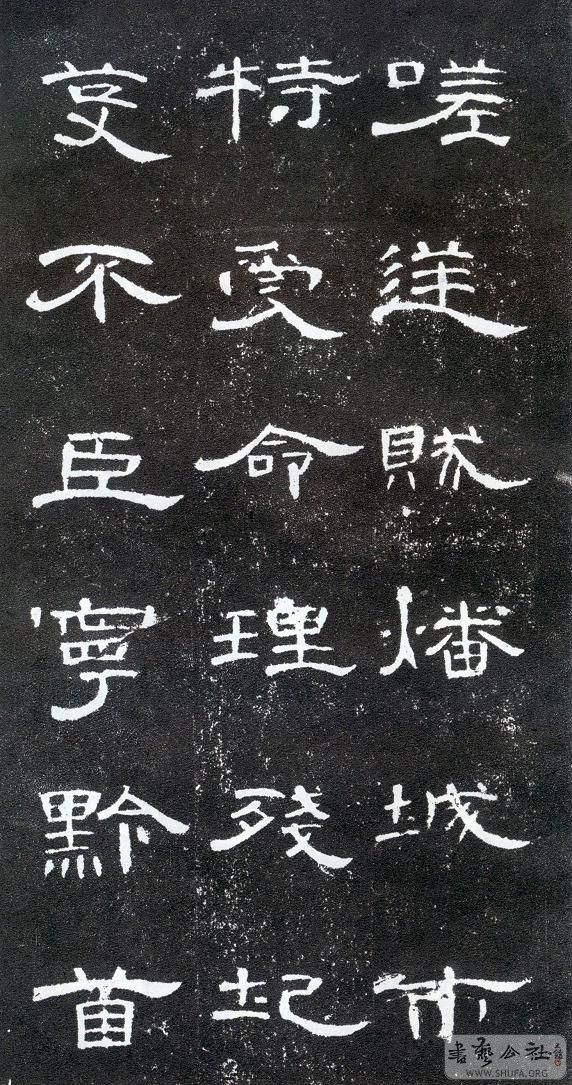 嗟逆賊燔城市
特受命理殘圮
芟不臣寧黔首
書藝公社
WWW.SHUFA.ORG